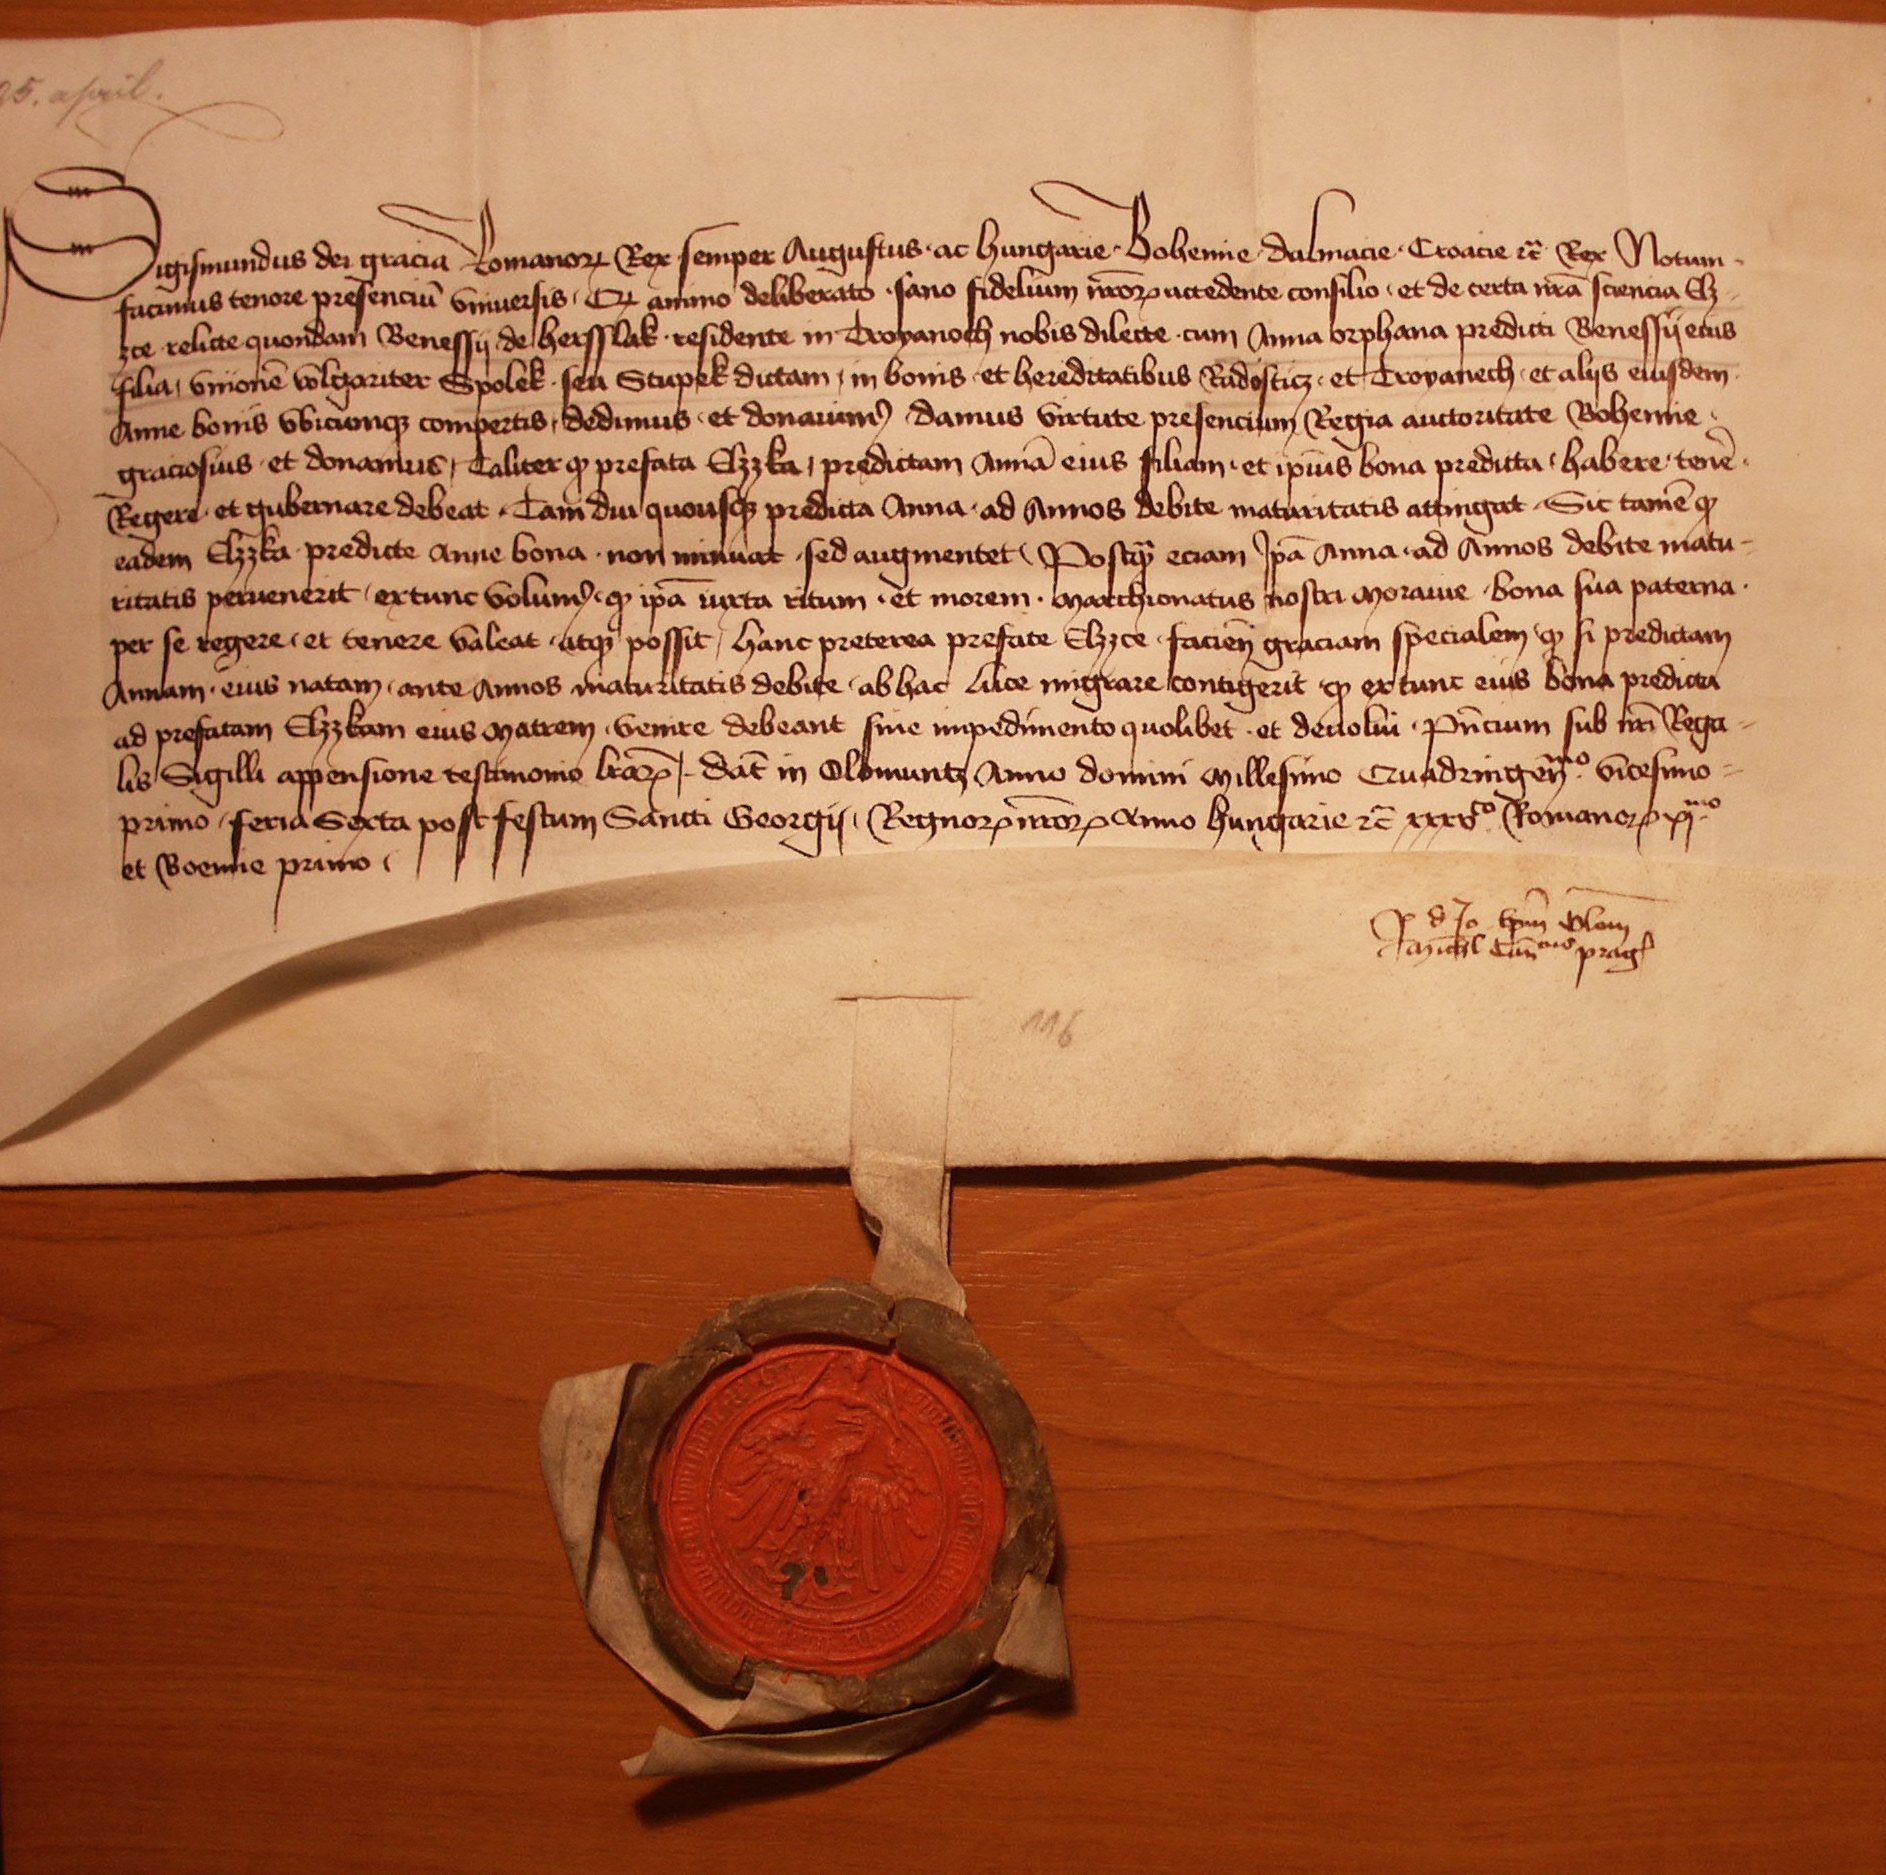 25. april.
Sigismundus dei gracia Romanoꝝ Rex semper Augustus · ac hungarie · Bohemie · dalmacie · Croacie ꝛc̄ · Rex Notum -
facimus tenore presenciū vniuersis · animo deliberato · sano fidelium nr̄oꝝ accedente consilio · et de certa nr̄a sciencia Elz -
zce relicte quondam Benessij de herssslak · residente in Troyanoch nobis dilecte · cum Anna orphana predicti Benessij eius
filia / vnionē vvlgariter Spolek · seu Stupek dictam / in bonis · et hereditatibus Radosticz · et Troyanech · et alijs eiusdem ·
Anne bonis vbicumqꝫ compertis / dedimus · et donauimꝰ · damus virtute presencium Regia auctoritate Bohemie ·
graciosius · et donamus / Taliter ꝙ prefata Elzzka / predictam Annā eius filiam · et ip̄ius bona predicta · habere · tenē ·
Regere · et gubernare debeat · Tam diu quousqꝫ predicta Anna · ad Annos debite maturitatis attingat · Sic tamē ꝙ
eadem Elzzka · predicte Anne bona · non minuat · sed augmentet / Postqꝫ eciam Ip̄a Anna · ad Annos debite matu -
ritatis peruenerit / extunc volumꝰ · ꝙ ip̄a iuxta ritum · et morem · Marchionatus nostri Morauie · bona sua paterna ·
per se regere · et tenere valeat · atqꝫ possit / hanc preterea prefate Elzzce · facień graciam specialem ꝙ si predictam
Annam · eius natam · ante Annos maturitatis debite · ab hac luce migrare contigerit · ꝙ extunc eius bona predicta
ad prefatam Elzzkam eius Matrem · venire debeant sine impedimento quolibet · et deuolui · Pn̄cium sub nr̄i Rega -
lis Sigilli appensione testimonio lr̄aꝝ / - Dat̄ in Olomuntz Anno domini Millesimo Quadringen̄ᵐᵒ · vicesimo -
primo · feria Sexta post festum Sancti Georgij / Regnoꝝ nr̄oꝝ Anno hungarie ꝛc̄ xxxvᵗᵒ · Romanoꝝ xjᵐᵒ
et Boemie primo /
P d Jo Ep̄m Olom̄
Mich̄l Can̄cus prag
116